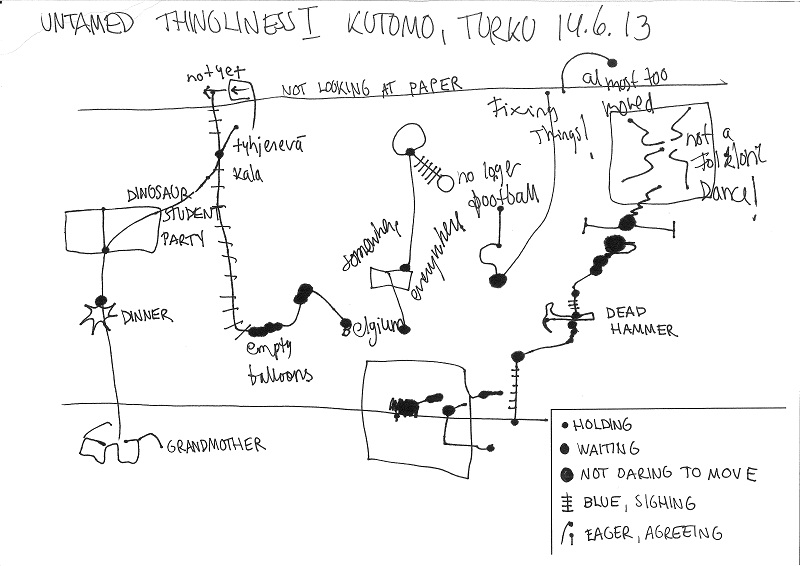 UNTAMED THINGLINESS I KUTOMO, TURKU 14.6.13
not yet
NOT LOOKING AT PAPER
almost too
moved
Fixing
Things!
not a
Folkloric
Dance!
tyhjenevä
kala
no loger
football
DINOSAUR
STUDENT
PARTY
somewhere
everywhere
DINNER
Belgium
empty
balloons
DEAD
HAMMER
GRANDMOTHER
HOLDING
WAITING
NOT DARING TO MOVE
BLUE, SIGHING
EAGER, AGREEING